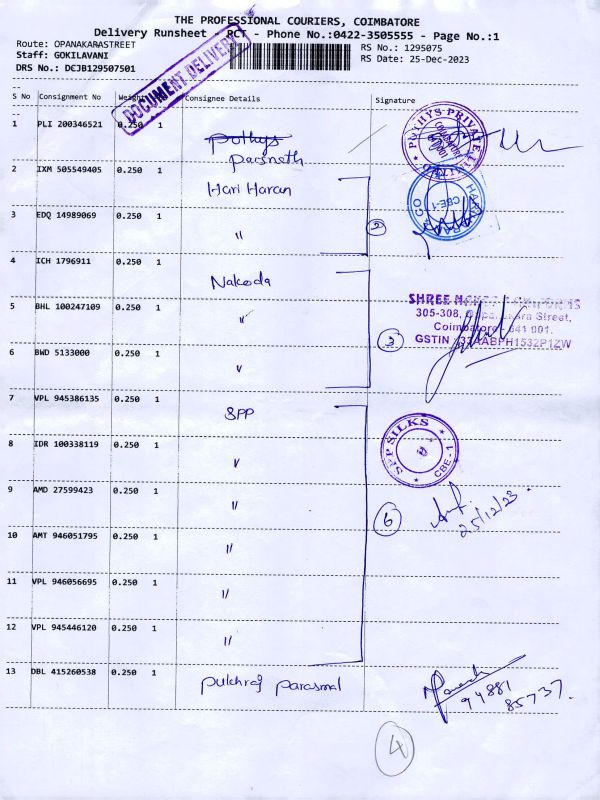 THE PROFESSIONAL COURIERS, COIMBATORE
Delivery Runsheet - RCT - Phone No.:0422-3505555 - Page No.:1
Route: OPANAKARASTREET
Staff: GOKILAVANI
DRS No.: DCJB129507501
RS No.: 1295075
RS Date: 25-Dec-2023
DOCUMENT DELIVERY
S No Consignment No Weight Consignee Details Signature
1 PLI 200346521 0.250 1 Pothys
Parsneth
POTHYS PRIVATE LIMITED
2 IXM 505549405 0.250 1 Hari Haran
CBE-1
3 EDQ 14989069 0.250 1 "
2
4 ICH 1796911 0.250 1 Nakoda
5 BHL 100247109 0.250 1 "
SHREE
305-308, Street,
Coimbatore 641 001.
GSTIN : 33AABFH1532P1ZW
3
6 BWD 5133000 0.250 1 "
7 VPL 945386135 0.250 1 SPP
SPP SILKS
CBE-1
8 IDR 100338119 0.250 1 "
9 AMD 27599423 0.250 1 "
6
25/12/23
10 AMT 946051795 0.250 1 "
11 VPL 946056695 0.250 1 "
12 VPL 945446120 0.250 1 "
13 DBL 415260538 0.250 1 Pukhraj Parasmal
94881
85737.
4